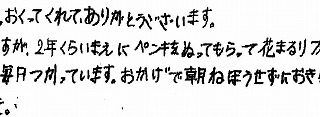 、おくってくれて、ありがとうございます。
すが、2年くらいまえにペンキをぬってもらって花まるリフ
毎日つかっています。おかげで朝ねぼうせずにおき
た。